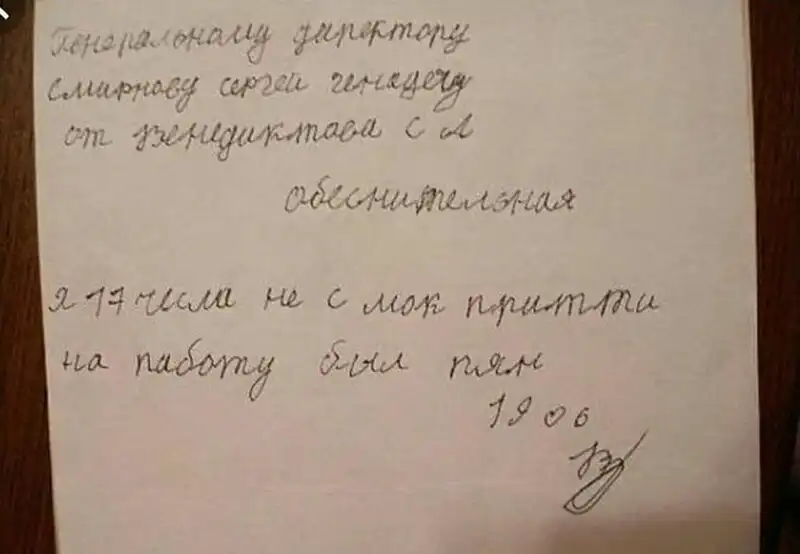 Генеральному директору
смирнову сергей генадечу
от Венедиктова с А
обеснителэная
я 17 чесла не с мок притти
на паботу был пян
19 06